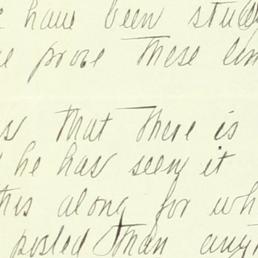 have been stud
prove these
that there is
he has seen it
this along for wh
posted than any